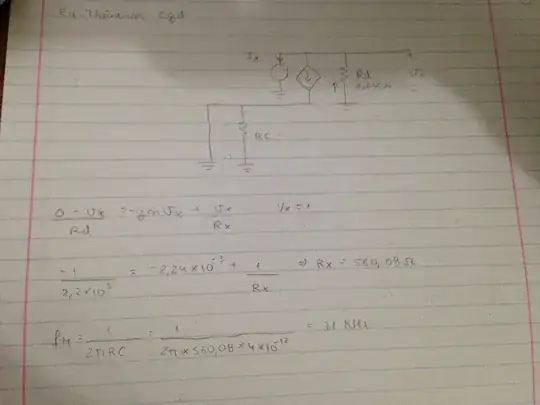 Thévenin Cgd
Rd
2,2kΩ
RS
0 - Vx / Rd = -gm Vx + Vx / Rx Vx = 1
-1 / 2,2×10³ = -2,24×10⁻³ + 1 / Rx ⇒ Rx = 560,08Ω
fH = 1 / 2πRC = 1 / 2π×560,08×4×10⁻¹² = 71 MHz